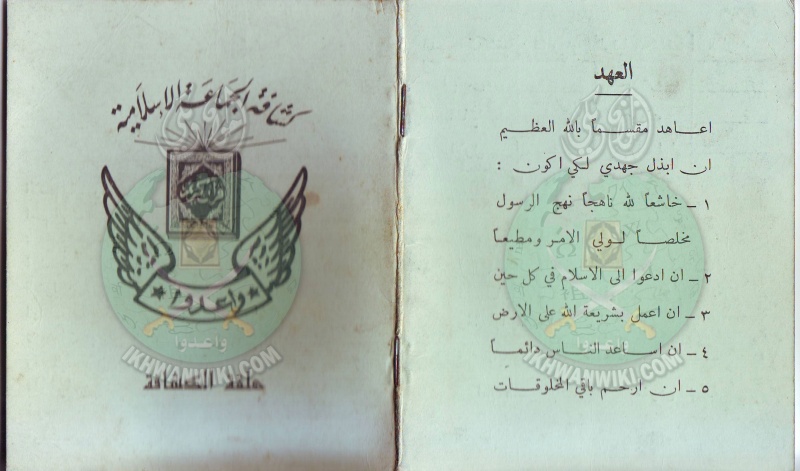 العهد
اعاهد مقسماً بالله العظيم
ان ابذل جهدي لكي اكون :
١ - خاشعاً لله ناهجاً نهج الرسول
مخلصاً لولي الامر ومطيعاً
٢ - ان ادعوا الى الاسلام في كل حين
٣ - ان اعمل بشريعة الله على الارض
٤ - ان اساعد الناس دائماً
٥ - ان ارحم باقي المخلوقات
كشافة الجماعة الاسلامية
واعدوا
واعدوا
IKHWANWIKI.COM
IKHWANWIKI.COM